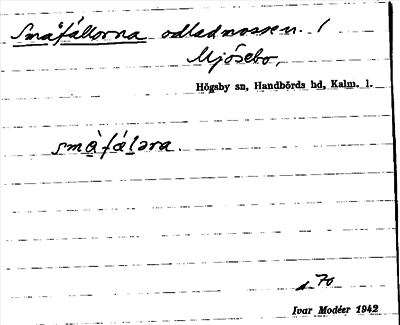 Småfållorna odlad mossen. /
Mjösebo,
Högsby sn, Handbörds hd, Kalm. l.
små`fá̱lǝra.
s. 70
Ivar Modéer 1942